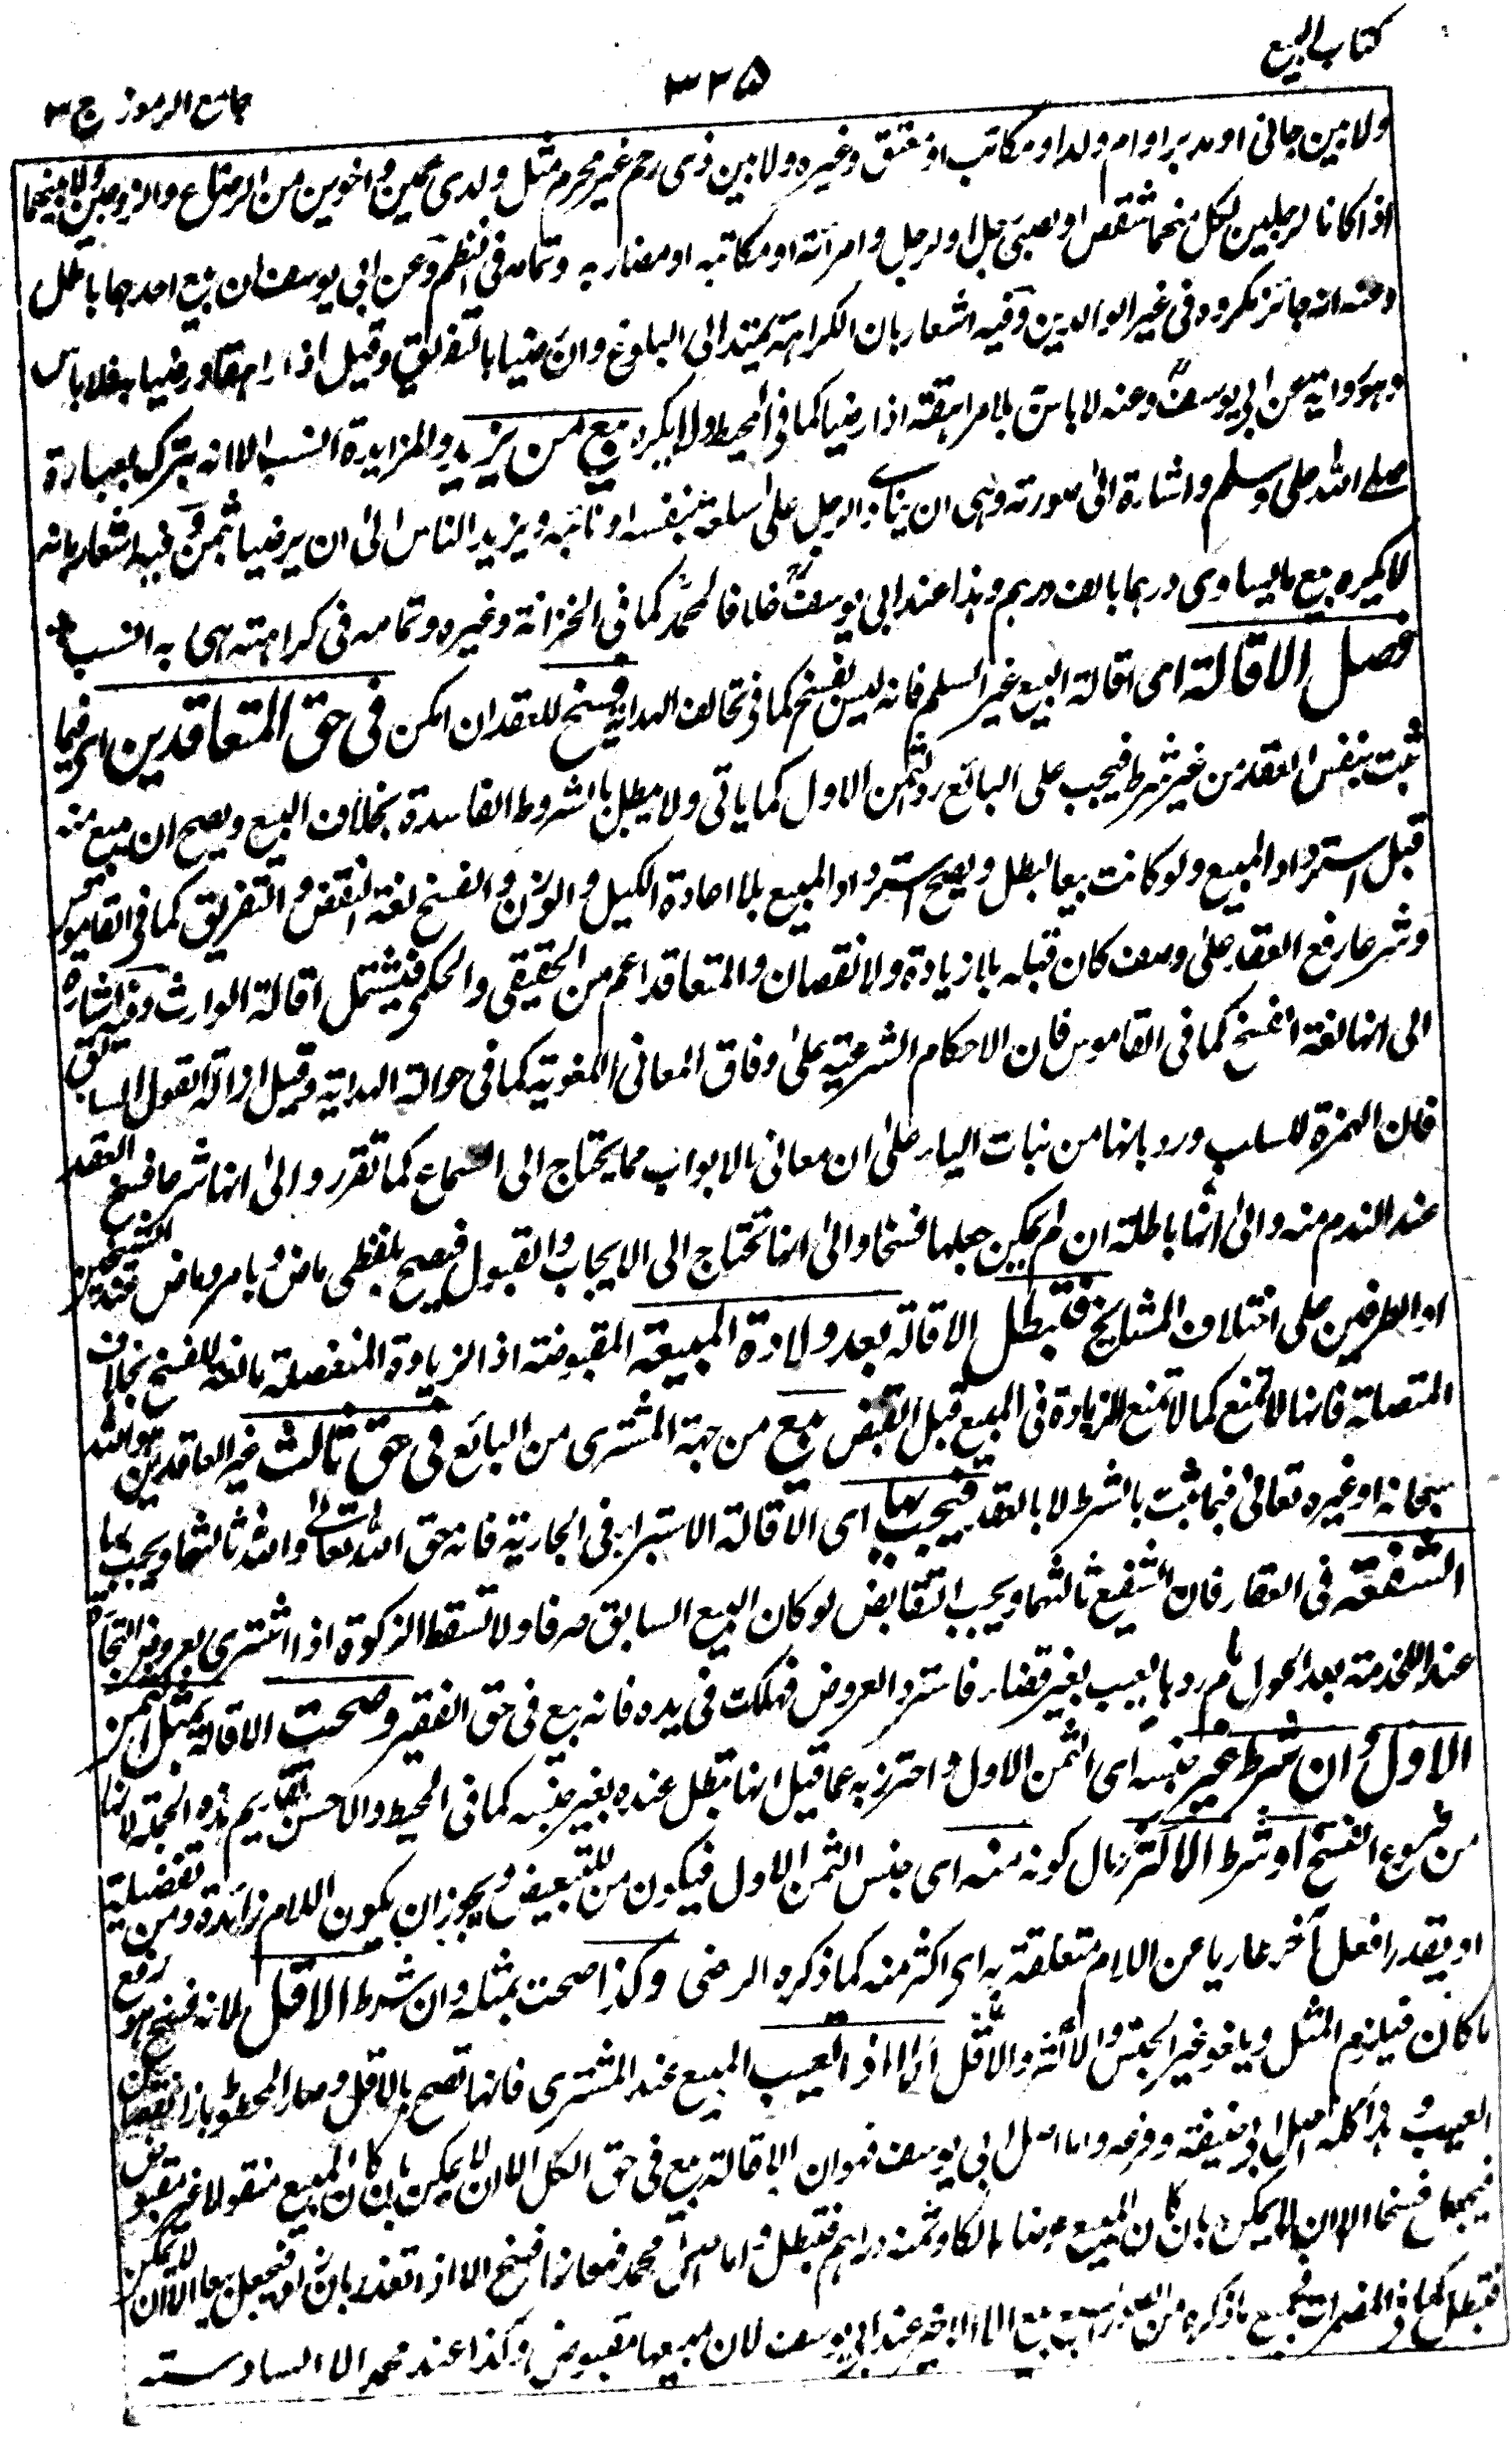 كتاب البيع
٣٢٥
جامع الرموز ج ٣
ولا بين جانى او مدبر او ام ولد او مكاتب او عتق وغيره ولا بين ذى رحم غير محرم مثل ولدى عمين واخوين من الرضاع والزوجين ولا بينهما
اذا كانا لرجلين لكل منهما شقص او لصبى رجل او لرجل وامرأته او مكاتبه او مضاربه وتمامه فى النظم وعن ابى يوسف ان بيع احدهما باطل
وعنه انه جائز مكروه فى غير الوالدين وفيه اشعار بان الكراهة يمتد الى البلوغ وان رضيا بالتفريق وقيل اذا راهقا ورضيا به فلا باس
وهو رواية عن ابى يوسف وعنه لا باس بلا مراهقة اذا رضيا كما فى المحيط ولا يكره بيع من يزيد والمزايدة انسب الا انه يتبرك بعبارة
صلى الله عليه وسلم واشارة الى صورته وهى ان ينادى الرجل على سلعة بنفسه او نائبه ويزيد الناس الى ان يرضيا بثمن وفيه اشعار بانه
لا يكره بيع ما يساوى درهما بالف درهم وهذا عند ابى يوسف خلافا لمحمد كما فى الخزانة وغيره وتمامه فى كراهته هى به انسب
فصل الاقالة اى اقالة البيع غير السلم فانه ليس بفسخ كما فى تحالف الهداية فسخ للعقد ان امكن فى حق المتعاقدين اى فيما
ثبت بنفس العقد من غير شرط فيجب على البائع رد الثمن الاول كما ياتى ولا يبطل بالشروط الفاسدة بخلاف البيع ويصح ان يبيع منه
قبل استرداد المبيع ولو كانت بيعا لبطل ويصح استرداد المبيع بلا اعادة الكيل والوزن والفسخ لغة النقض والتفريق كما فى القاموس
وشرعا رفع العقد على وصف كان قبله بلا زيادة ولا نقصان والمتعاقد اعم من الحقيقى والحكمى فيشتمل اقالة الوارث وفيه اشارة
الى انها لغة الفسخ كما فى القاموس فان الاحكام الشرعية على وفاق المعانى اللغوية كما فى حوالة الهداية وقيل ازالة القول السابق
فان الهمزة للسلب ورد بانها من نبات الياء على ان معانى الابواب مما يحتاج الى السماع كما تقرر والى انها شرعا فسخ العقد
عند الندم منه والى انها باطلة ان لم يمكن جعلها فسخا والى انها تحتاج الى الايجاب والقبول فيصح بلفظى ماض وبامر وماض عند الشيخين
او الطرفين على اختلاف المشايخ فتبطل الاقالة بعد ولادة المبيعة المقبوضة اذ الزيادة المنفصلة مانعة للفسخ بخلاف
المتصلة فانها لا تمنع كما لا تمنع الزيادة فى المبيع قبل القبض بيع من جهة المشترى من البائع فى حق ثالث غير العاقدين هو الله
سبحانه او غيره تعالى فيما ثبت بالشرط لا بالعقد فيجب بها اى الاقالة الاستبراء فى الجارية فانه حق الله تعالى والله ثالثهما ويجب بها
الشفعة فى العقار فان الشفيع ثالثهما ويجب التقابض لو كان البيع السابق صرفا ولا تسقط الزكوة اذا اشترى بعروض التجارة
عبدا للخدمة بعد الحول ثم ردها بعيب بغير قضاء فاسترد العروض فهلكت فى يده فانه بيع فى حق الفقير وصحت الاقالة بمثل الثمن
الاول وان شرط غير جنسه اى الثمن الاول واحترز به عما قيل انها تبطل عنده بغير جنسه كما فى المحيط والاحسن تقديم هذه الجملة لانها
من فروع الفسخ او شرط الاكثر حال كونه منه اى جنس الثمن الاول فيكون من للتبعيض ويجوز ان يكون اللام زائدة ومن تفضيلية
او يقدر افعل آخر عاريا عن اللام متعلقة به اى اكثر منه كما ذكره الرضى وكذا صحت بمثله وان شرط الاقل لانه فسخ هو رفع
ما كان فيلزم المثل ويلغو غير الجنس والاكثر والاقل الا اذا تعيب المبيع عند المشترى فانها تصح بالاقل وصار المحطوط بازاء نقصان
العيب وهذا كله اصل ابى حنيفة وفرعه واما اصل ابى يوسف فهو ان الاقالة بيع فى حق الكل الا ان لا يمكن بان كان المبيع منقولا غير مقبوض
فيجعل فسخا الا ان لا يمكن بان كان المبيع عرضا هالكا وثمنه دراهم فتبطل واما اصل محمد فهو انها فسخ الا اذا تعذر بان فيجعل بيعا الا ان لا يمكن
فتبطل كما فى المضمرات فجميع ما ذكره من الصور السبع بيع الا الاخير عند ابى يوسف لان مبيعها مقبوض وكذا عند محمد الا السادسة